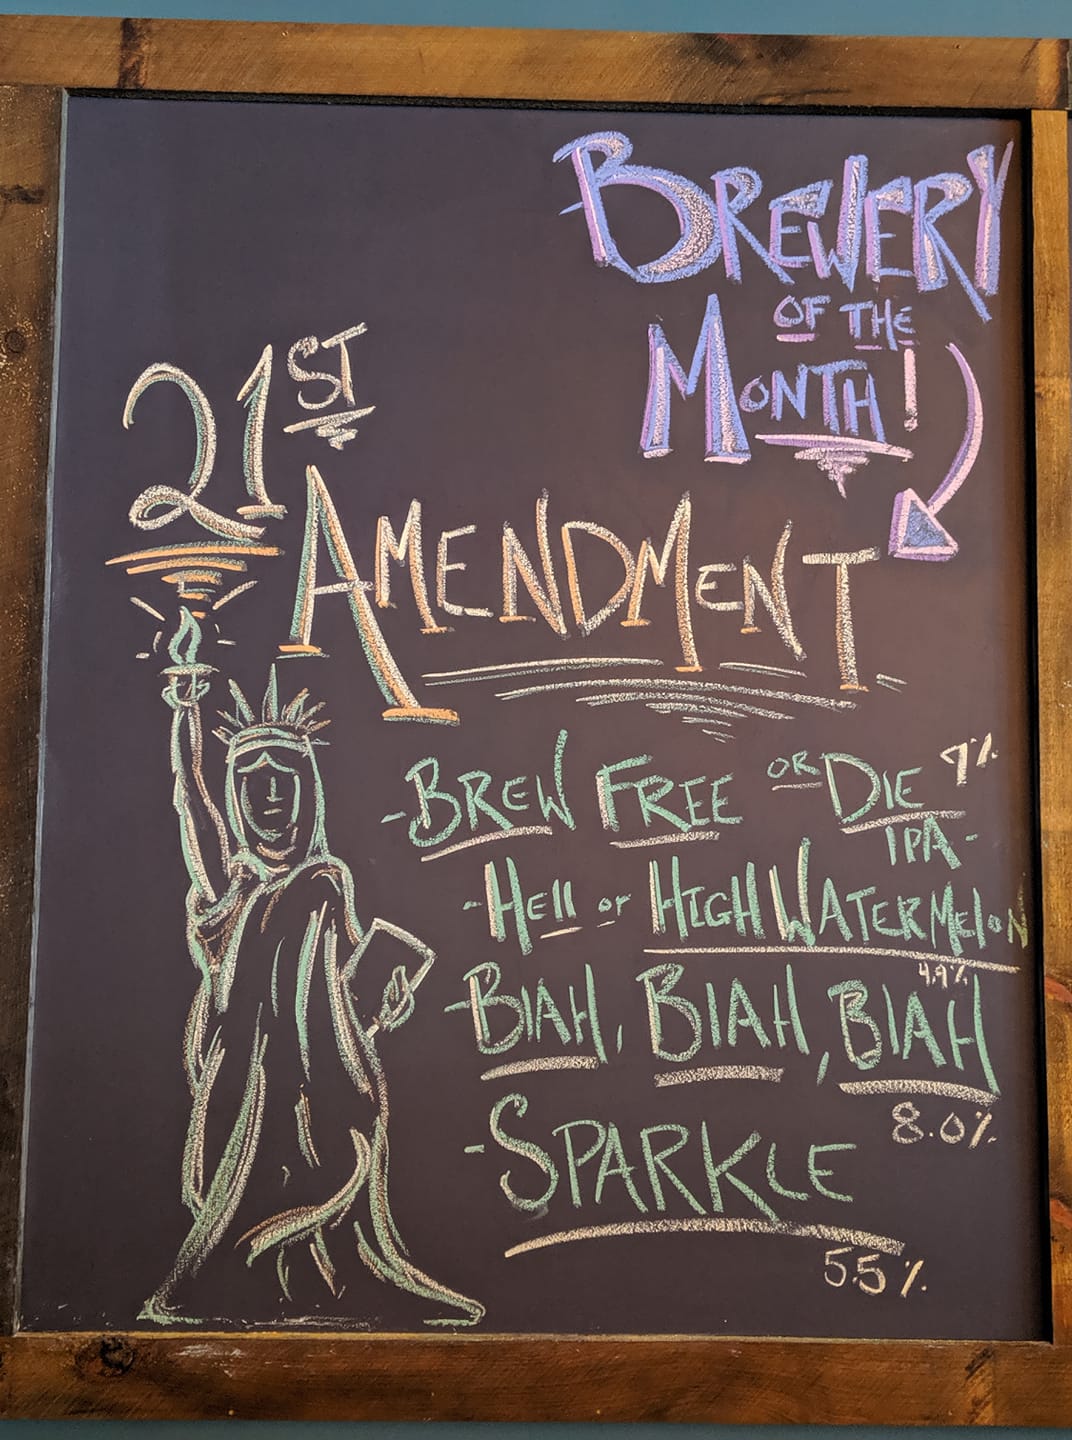 BREWERY
OF THE
MONTH!
21ST
AMENDMENT
-BREW FREE OR DIE 7%
IPA-
-HEll or HIGH WATERMElON
4.9%
-BlAH, BlAH, BlAH
8.0%
-SPARKLE
5.5%